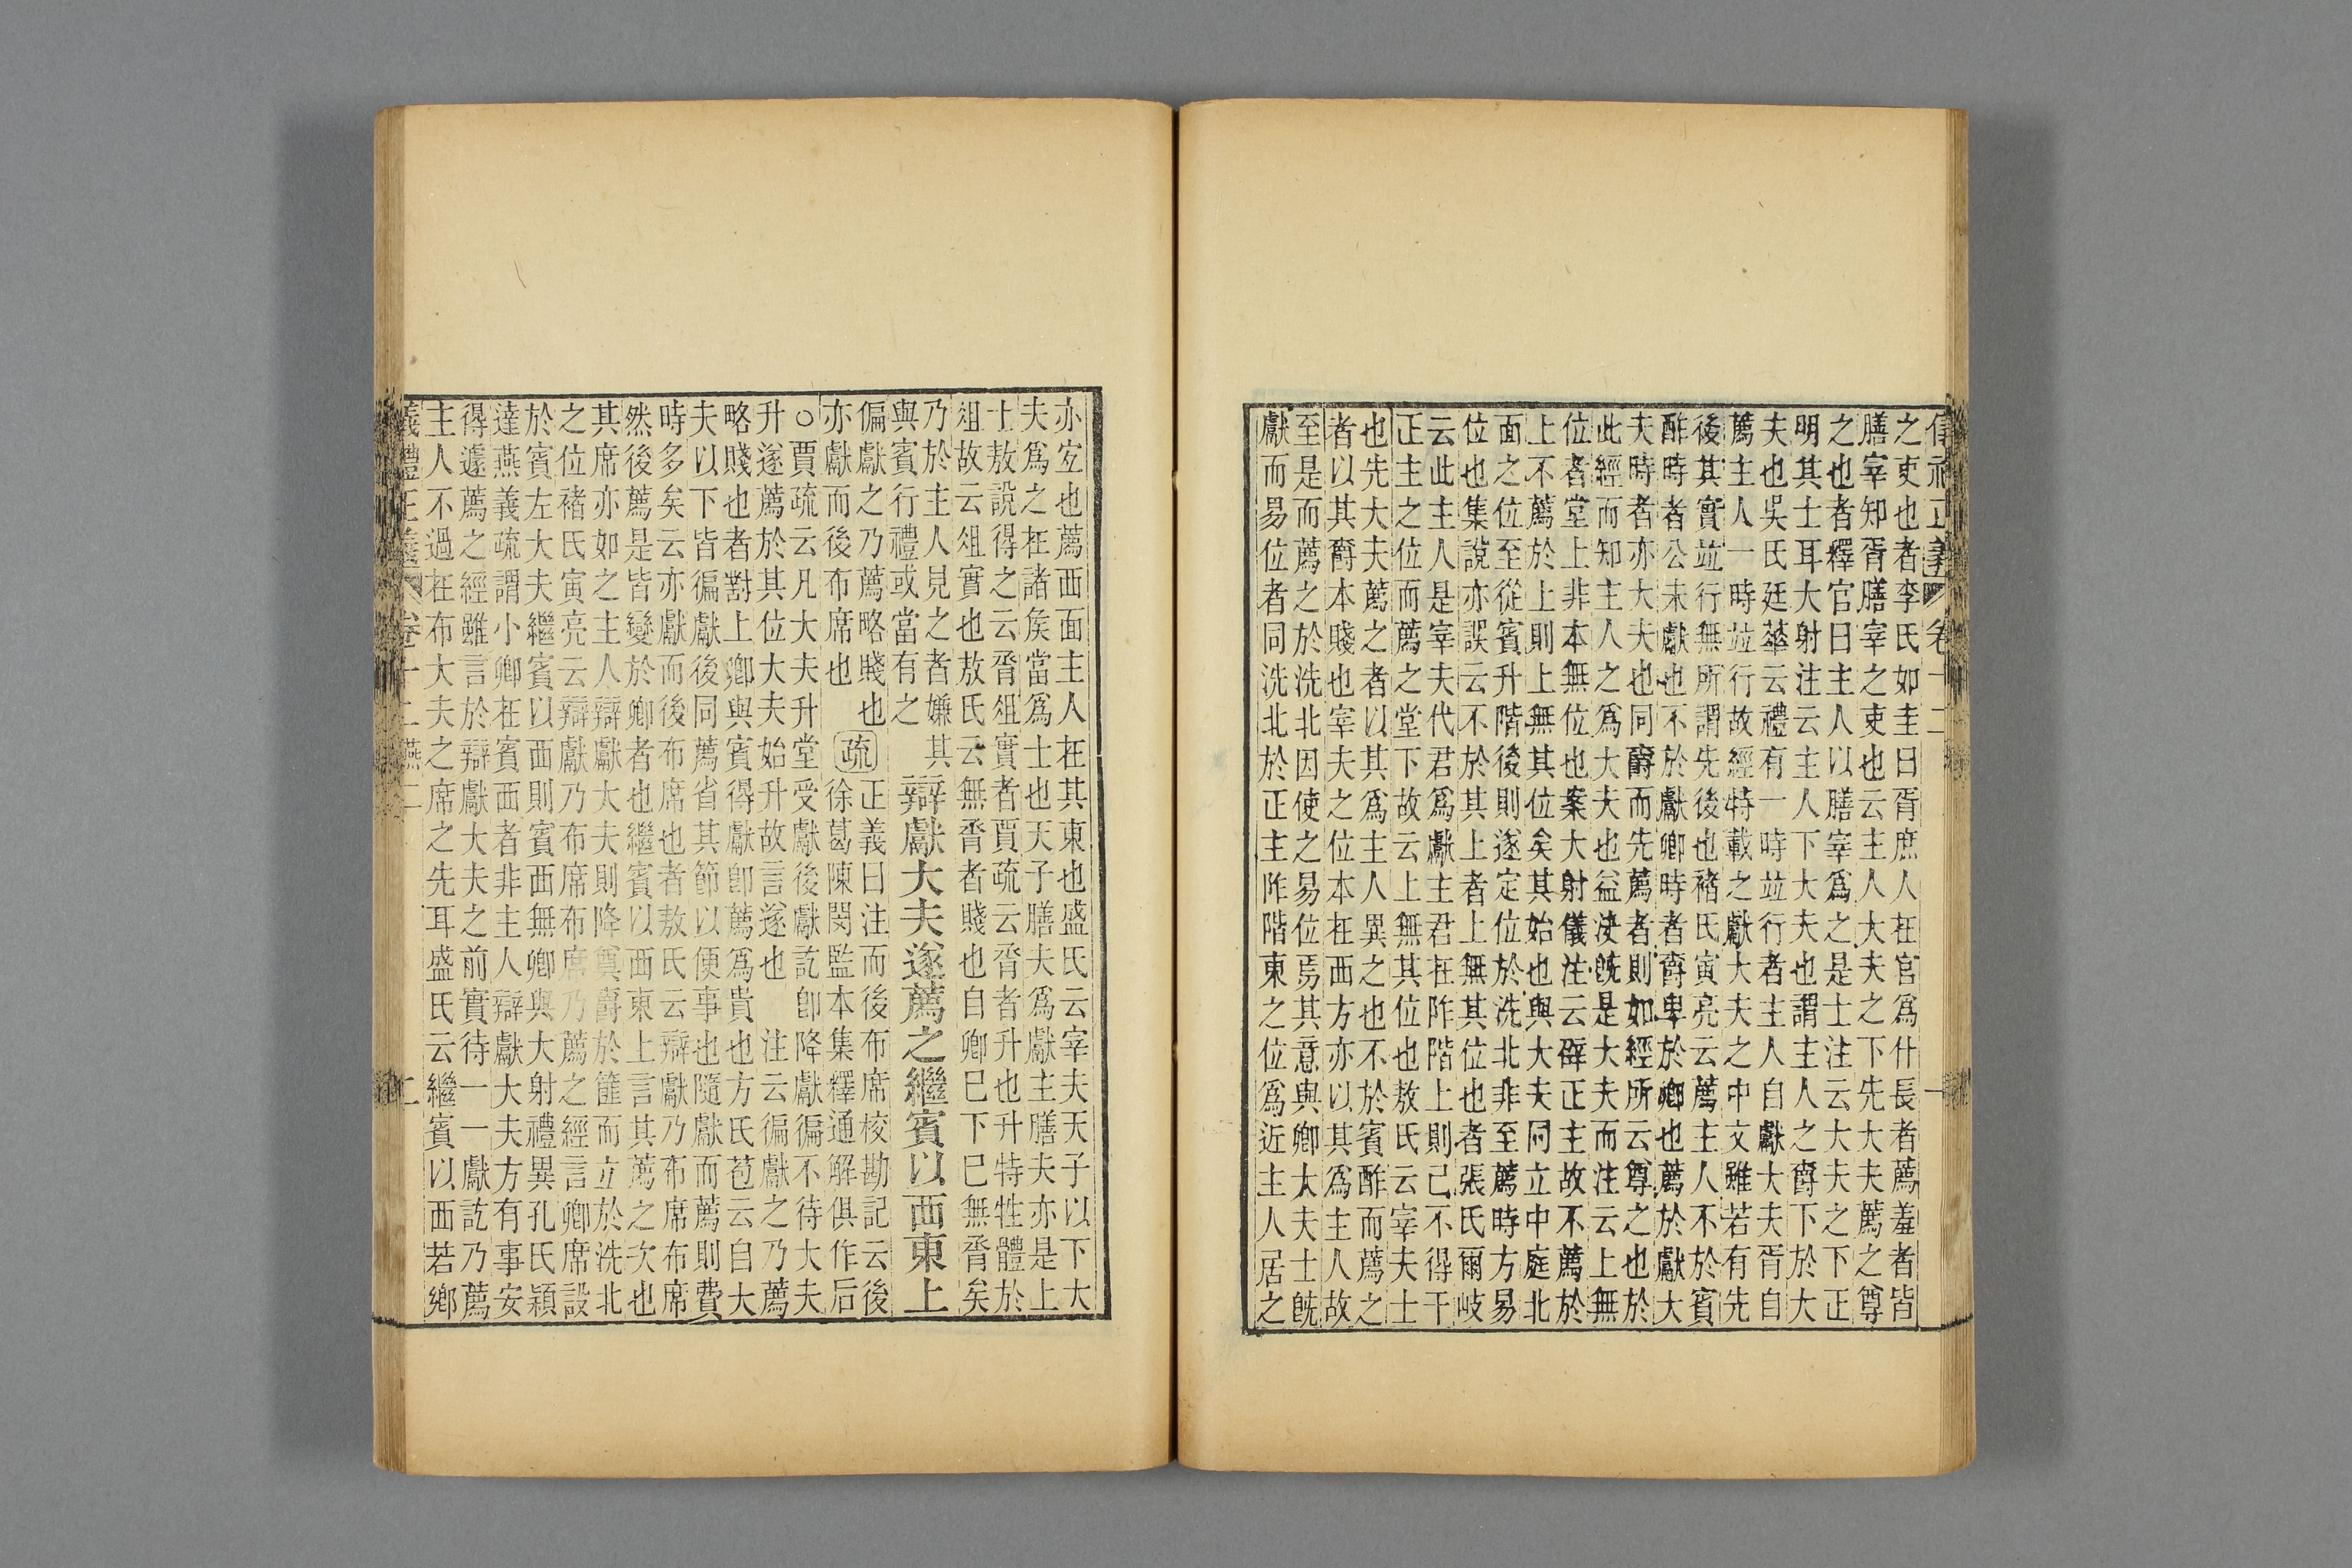 儀禮正義 卷十二 一
之吏也者李氏如圭曰胥庶人在官爲什長者薦羞者皆
膳宰知胥膳宰之吏也云主人大夫之下先大夫薦之尊
之也者釋官曰主人以膳宰爲之是士注云大夫之下正
明其士耳大射注云主人下大夫也謂主人之爵下於大
夫也吳氏廷華云禮有一時並行者主人自獻大夫胥自
薦主人一時並行故經特載之獻大夫之中文雖若有先
後其實並行無所謂先後也褚氏寅亮云薦主人不於賓
酢時者公未獻也不於獻卿時者爵卑於卿也薦於獻大
夫時者亦大夫也同爵而先薦者則如經所云尊之也於
此經而知主人之爲大夫也益決旣是大夫而注云上無
位者堂上非本無位也案大射儀注云辟正主故不薦於
上不薦於上則上無其位矣其始也與大夫同立中庭北
面之位至從賓升階後則遂定位於洗北非至薦時方易
位也集說亦誤云不於其上者上無其位也者張氏爾岐
云此主人是宰夫代君爲獻主君在阼階上則己不得干
正主之位而薦之堂下故云上無其位也敖氏云宰夫士
也先大夫薦之者以其爲主人異之也不於賓酢而薦之
者以其爵本賤也宰夫之位本在西方亦以其爲主人故
至是而薦之於洗北因使之易位焉其意與卿大夫士旣
獻而易位者同洗北於正主阼階東之位爲近主人居之
亦宐也薦西面主人在其東也盛氏云宰夫天子以下大
夫爲之在諸矦當爲士也天子膳夫爲獻主膳夫亦是上
士敖說得之云脀俎實者賈疏云脀者升也升特牲體於
俎故云俎實也敖氏云無脀者賤也自卿已下已無脀矣
乃於主人見之者嫌其
與賓行禮或當有之
辯獻大夫遂薦之繼賓以西東上
偏獻之乃薦略賤也
亦獻而後布席也
疏
正義曰注而後布席校勘記云後
徐葛陳閔監本集釋通解俱作后
○賈疏云凡大夫升堂受獻後獻訖卽降獻徧不待大夫
升遂薦於其位大夫始升故言遂也 注云徧獻之乃薦
略賤也者對上卿與賓得獻卽薦爲貴也方氏苞云自大
夫以下皆徧獻後同薦省其節以便事也隨獻而薦則費
時多矣云亦獻而後布席也者敖氏云辯獻乃布席布席
然後薦是皆變於卿者也繼賓以西東上言其薦之次也
其席亦如之主人辯獻大夫則降奠爵於篚而立於洗北
之位褚氏寅亮云辯獻乃布席布席乃薦之經言卿席設
於賓左大夫繼賓以西則賓西無卿與大射禮異孔氏穎
達燕義疏謂小卿在賓西者非主人辯獻大夫方有事安
得遽薦之經雖言於辯獻大夫之前實待一一獻訖乃薦
主人不過在布大夫之席之先耳盛氏云繼賓以西若鄉
儀禮正義 卷十二 燕二 二